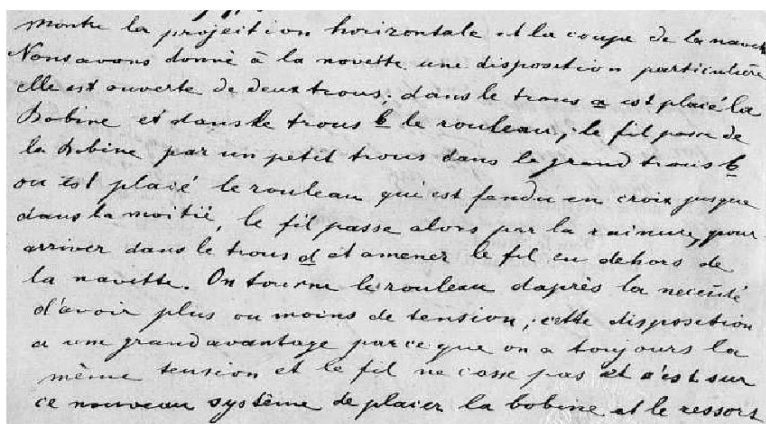 montre la projection horizontale et la coupe de la navette
Nous avons donné à la navette une disposition particulière
elle est ouverte de deux trous; dans le trous a est plaié la
Bobine et dans le trous b le rouleau; le fil passe de
la Bobine par un petit trous dans le grand trous b
ou est plaié le rouleau qui est fendu en croix jusque
dans la moitié, le fil passe alors par la rainure, pour
arriver dans le trous d et amener le fil en dehors de
la navette. On tourne le rouleau d'après la necésité
d'avoir plus ou moins de tension; cette disposition
a une grand avantage parce que on a toujours la
même tension et le fil ne casse pas et c'est sur
ce nouveau système de plaier la bobine et le ressort